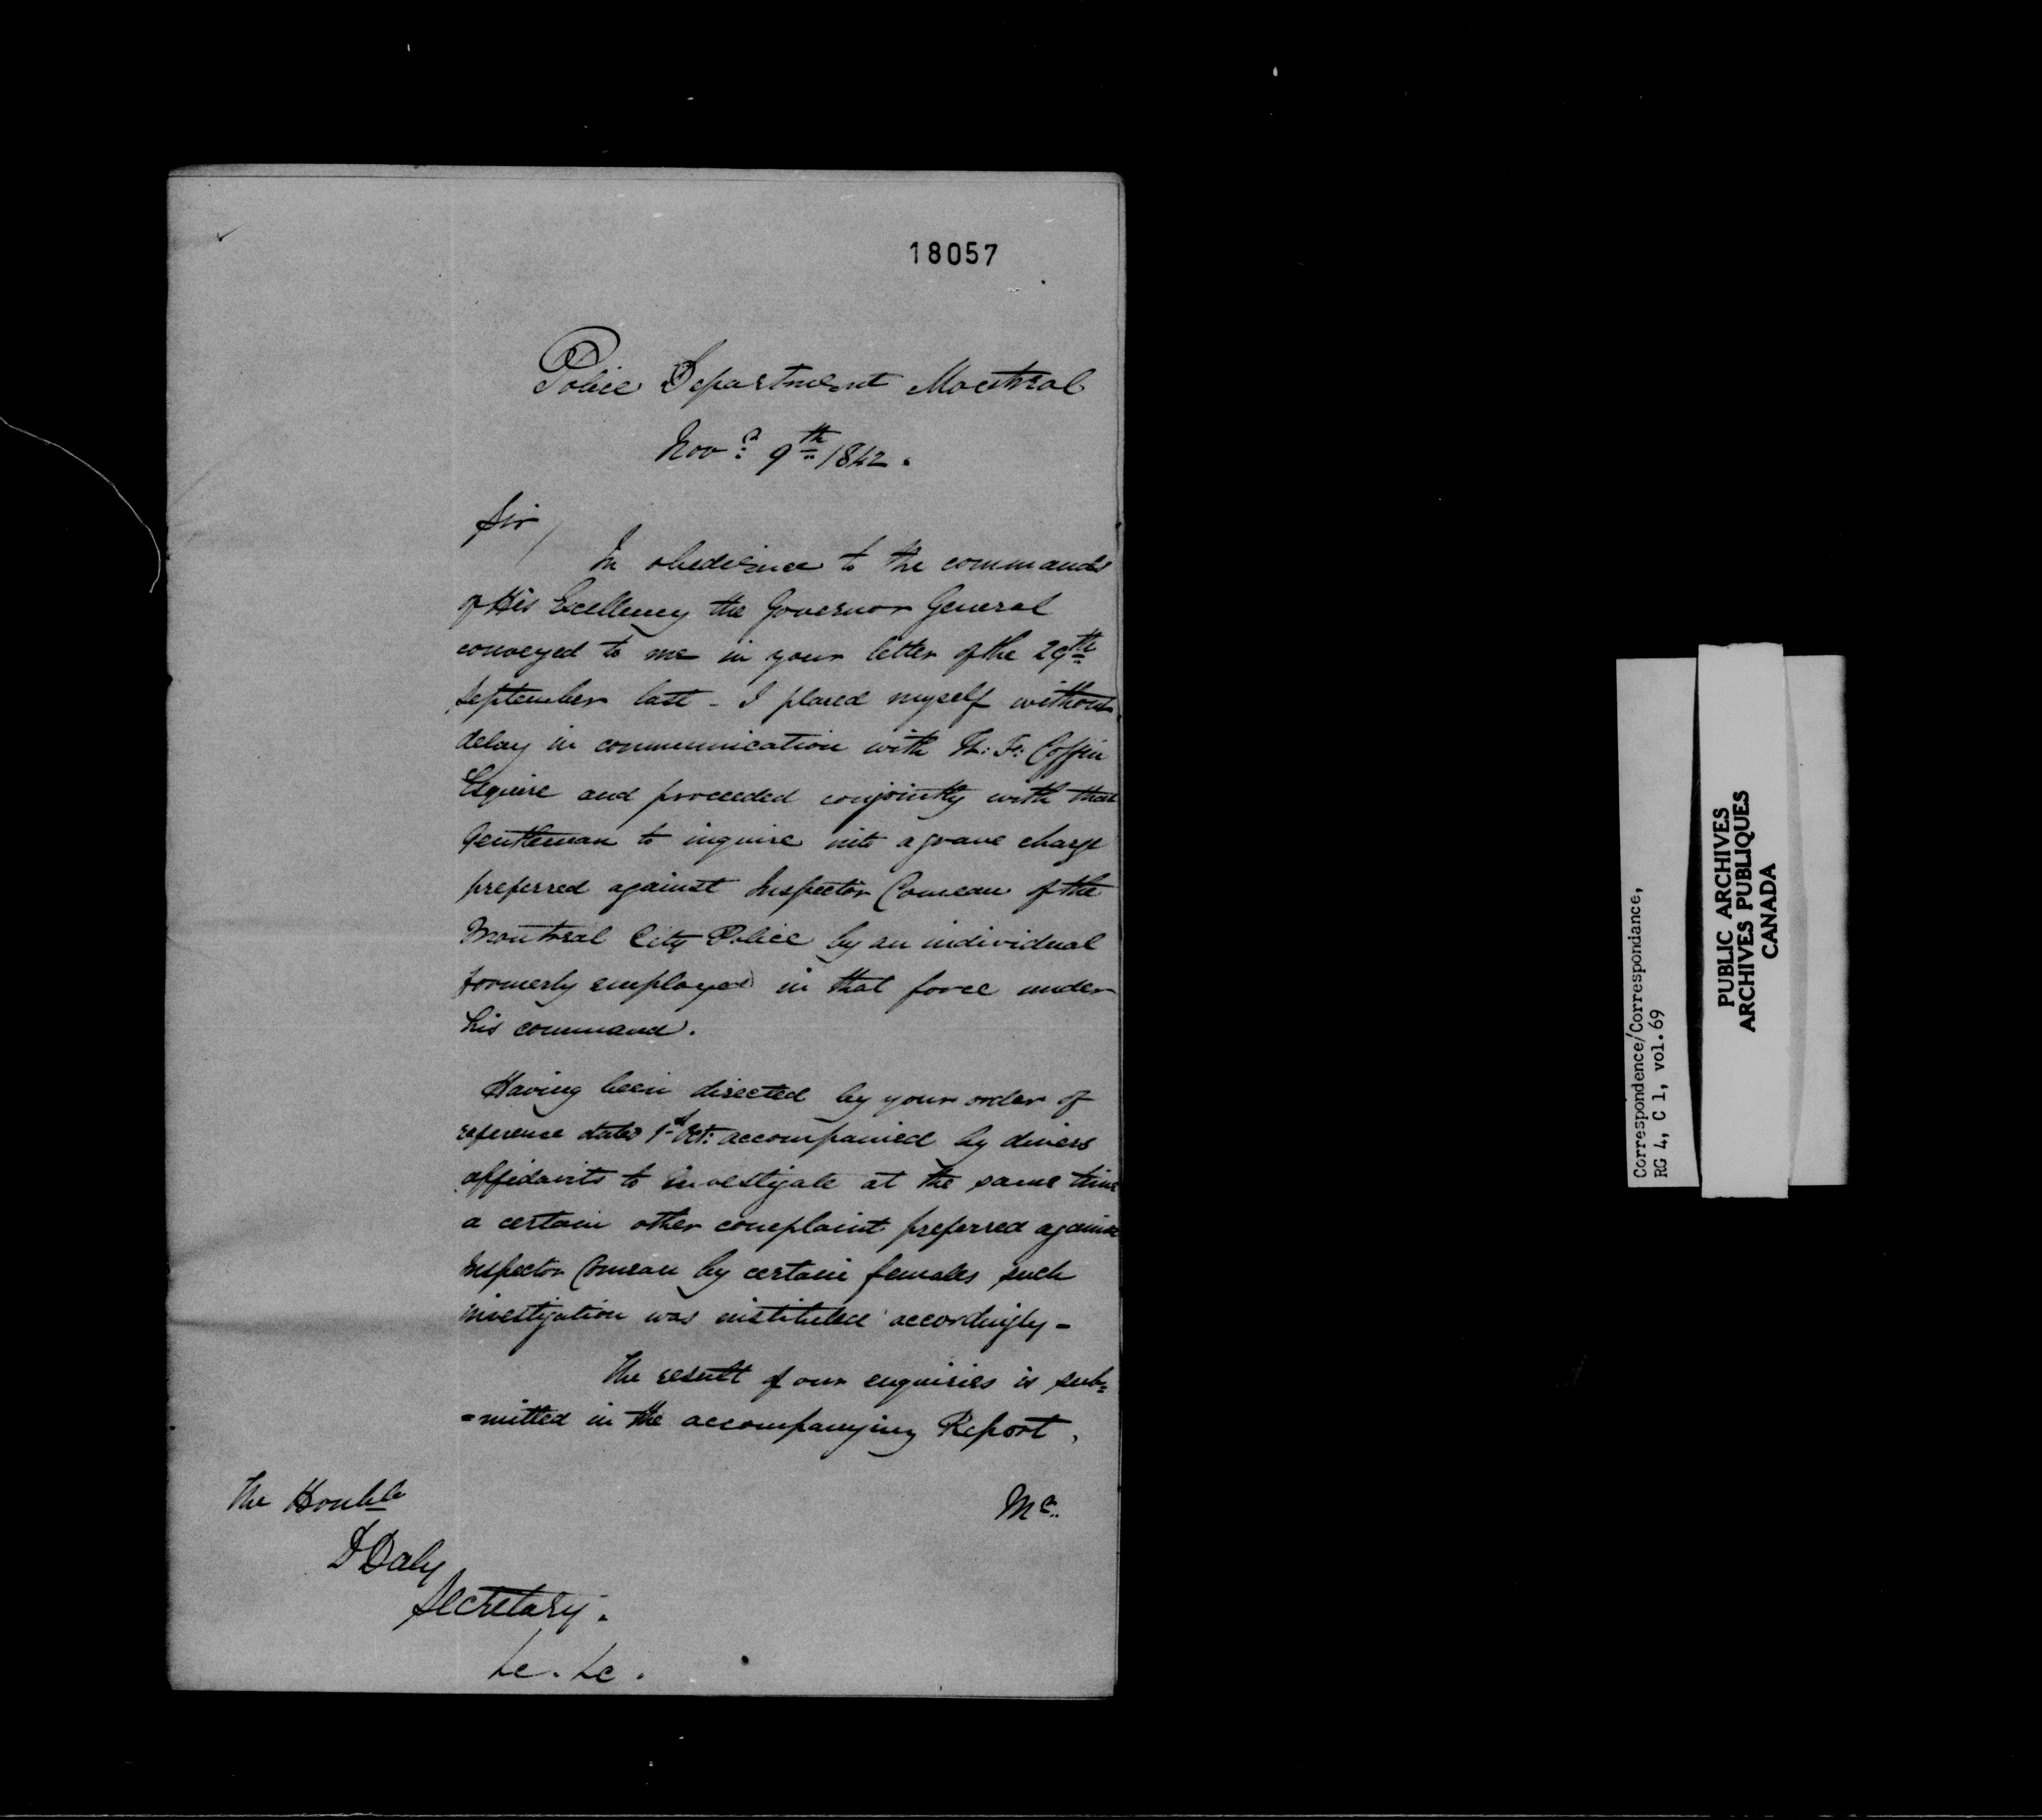 18057
Police Department Montreal
Novr 9th 1842.
Sir,
In obedience to the commands
of His Excellency the Governor General
conveyed to me in your letter of the 29th
September last - I placed myself without
delay in communication with Coffin
Esquire and proceeded conjointly with that
Gentleman to inquire into a grave charge
preferred against Inspector Comeau of the
Montreal City Police by an individual
formerly employed in that force under
his command.
Having been directed by your order of
reference dated 1st Oct: accompanied by divers
affidavits to investigate at the same time
a certain other complaint preferred against
Inspector Comeau by certain females such
investigation was instituted accordingly -
The result of our enquiries is sub=
=mitted in the accompanying Report.
Mr.
The Honble
D Daly
Secretary.
&c. &c.
Correspondence/Correspondance,
RG 4, C 1, vol.69
PUBLIC ARCHIVES
ARCHIVES PUBLIQUES
CANADA